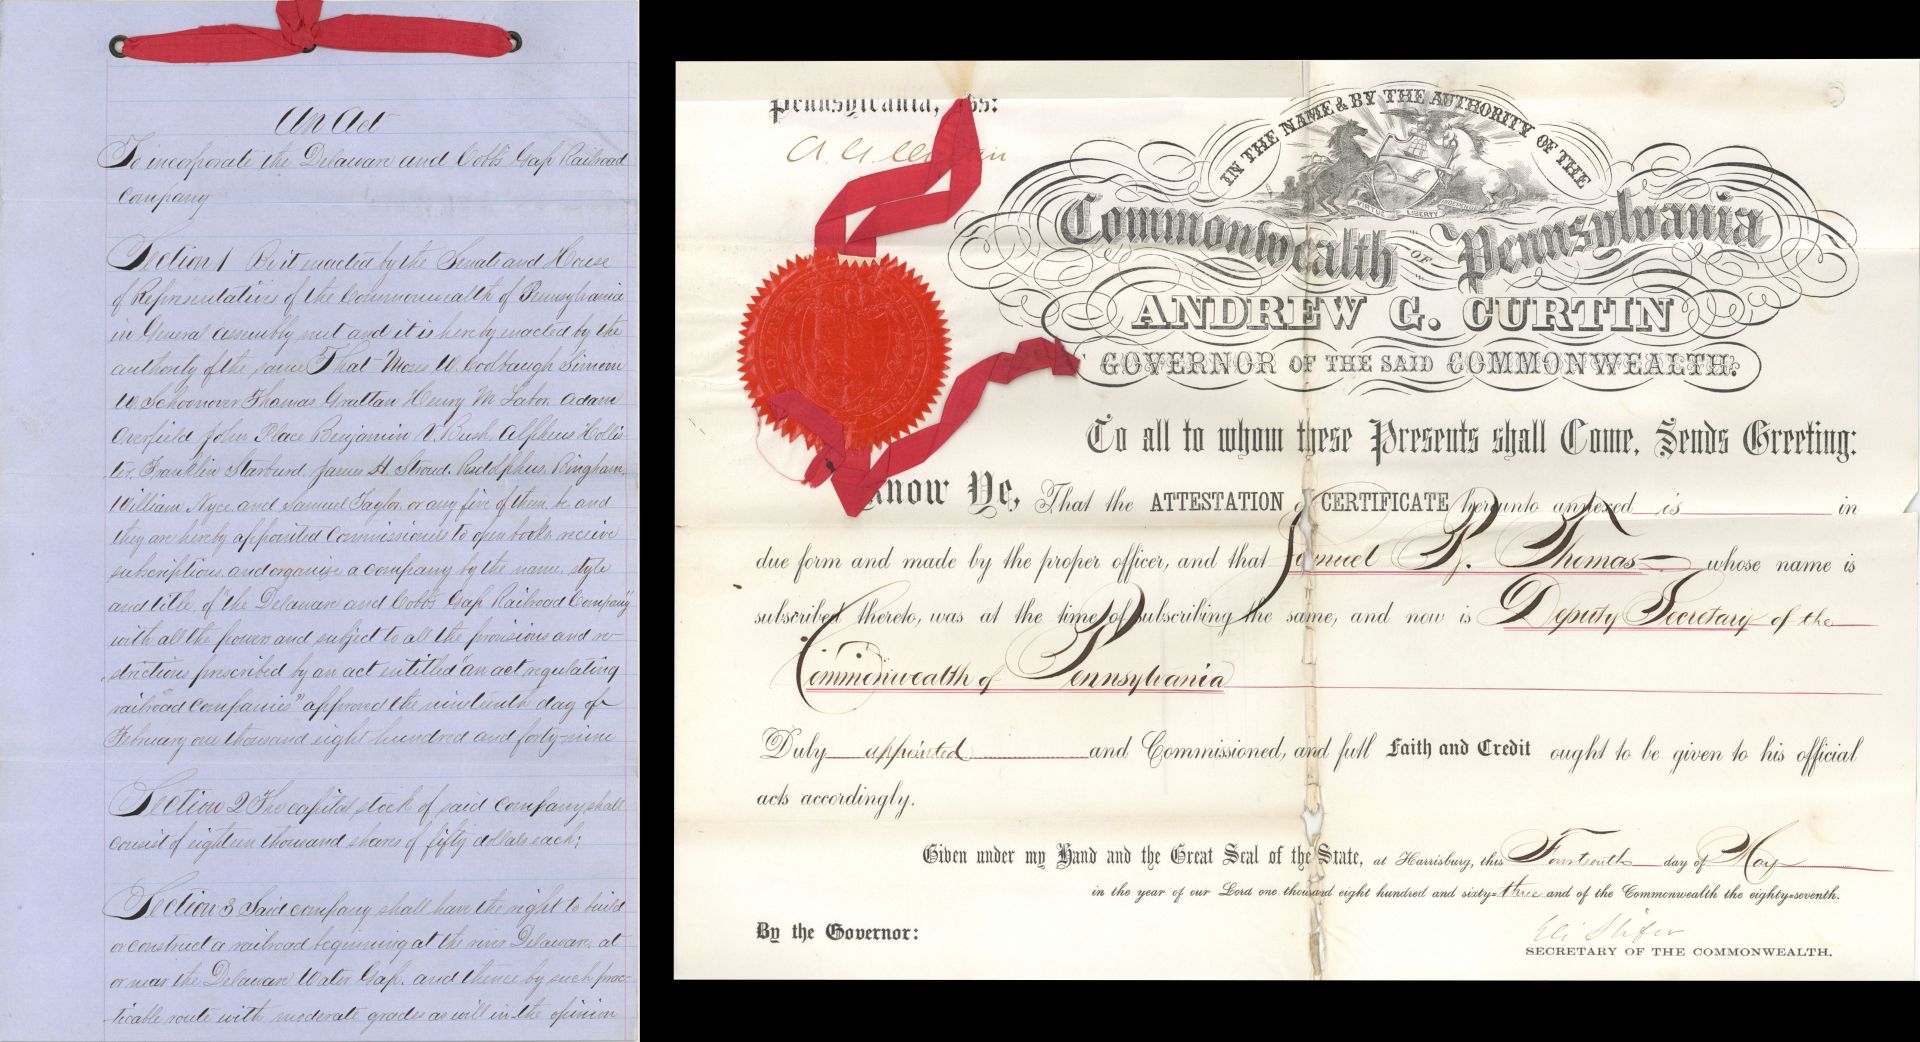 An Act
To incorporate the Delaware and Cobb's Gap Railroad
Company
Section 1 Be it enacted by the Senate and House
of Representatives of the Commonwealth of Pennsylvania
in General Assembly met and it is hereby enacted by the
authority of the same That Moses W Coolbaugh Simeon
W. Schoonover Thomas Grattan Henry M Labor Adam
Overfield John Place Benjamin V. Bush Alpheus Hollis
ter Franklin Starburd. James H. Stroud. Rudolphus Bingham.
William Nyce and Samuel Taylor, or any five of them, be and
they are hereby appointed Commissioners to open books, receive
subscriptions and organize a company by the name, style
and title, of "the Delaware and Cobb's Gap Railroad Company"
with all the powers and subject to all the provisions and re-
strictions prescribed by an act entitled "an act regulating
railroad companies" approved the nineteenth day of
February one thousand eight hundred and forty-nine
Section 2 The capital stock of said company shall
consist of eighteen thousand shares of fifty dollars each;
Section 3 Said company shall have the right to build
or construct a railroad beginning at the river Delaware, at
or near the Delaware Water Gap, and thence by such prac-
ticable route with moderate grades as will in the opinion
Pennsylvania, ss:
A G Curtin
IN THE NAME & BY THE AUTHORITY OF THE
VIRTUE LIBERTY
Commonwealth OF Pennsylvania
ANDREW G. CURTIN
GOVERNOR OF THE SAID COMMONWEALTH.
To all to whom these Presents shall Come, Sends Greeting:
Know Ye, That the ATTESTATION or CERTIFICATE hereunto annexed is in
due form and made by the proper officer, and that Samuel B. Thomas whose name is
subscribed thereto, was at the time of subscribing the same, and now is Deputy Secretary of the
Commonwealth of Pennsylvania
Duly appointed and Commissioned, and full Faith and Credit ought to be given to his official
acts accordingly.
Given under my Hand and the Great Seal of the State, at Harrisburg, this Fourteenth day of May
in the year of our Lord one thousand eight hundred and sixty-three and of the Commonwealth the eighty-seventh.
By the Governor:
Eli Slifer
SECRETARY OF THE COMMONWEALTH.